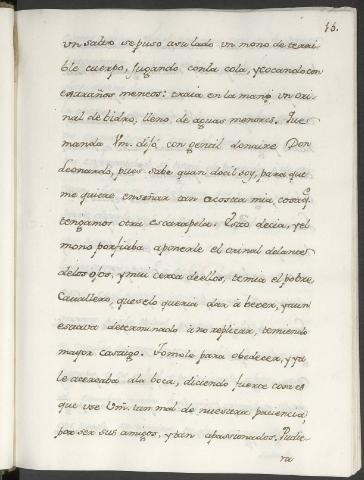 15.
un salto se puso a su lado un mono de terri
ble cuerpo, jugando con la cola, y cocando con
estraños meneos: traia en la mano un ori-
nal de bidro, lleno de aguas menores. Que
manda Vm. dijo con gentil donaire Don
leonardo, pues sabe quan docil soy, para que
me quiere enseñar tan a costa mia, cosa q.e
tengamos otra escarapela. Esto decia, y el
mono porfiaba a ponerle el orinal delante
de los ojos, y mui cerca de ellos, temia el pobre
Cavallero, que se lo queria dar à bever, y aun
estava determinado à no replicar, temiendo
mayor castigo. Tomole para obedecer, y ya
le acercaba a la boca, diciendo fuerte cosa es
que use Vm. tan mal de nuestra paciencia,
por ser sus amigos, y tan apassionados. Pudie
ra